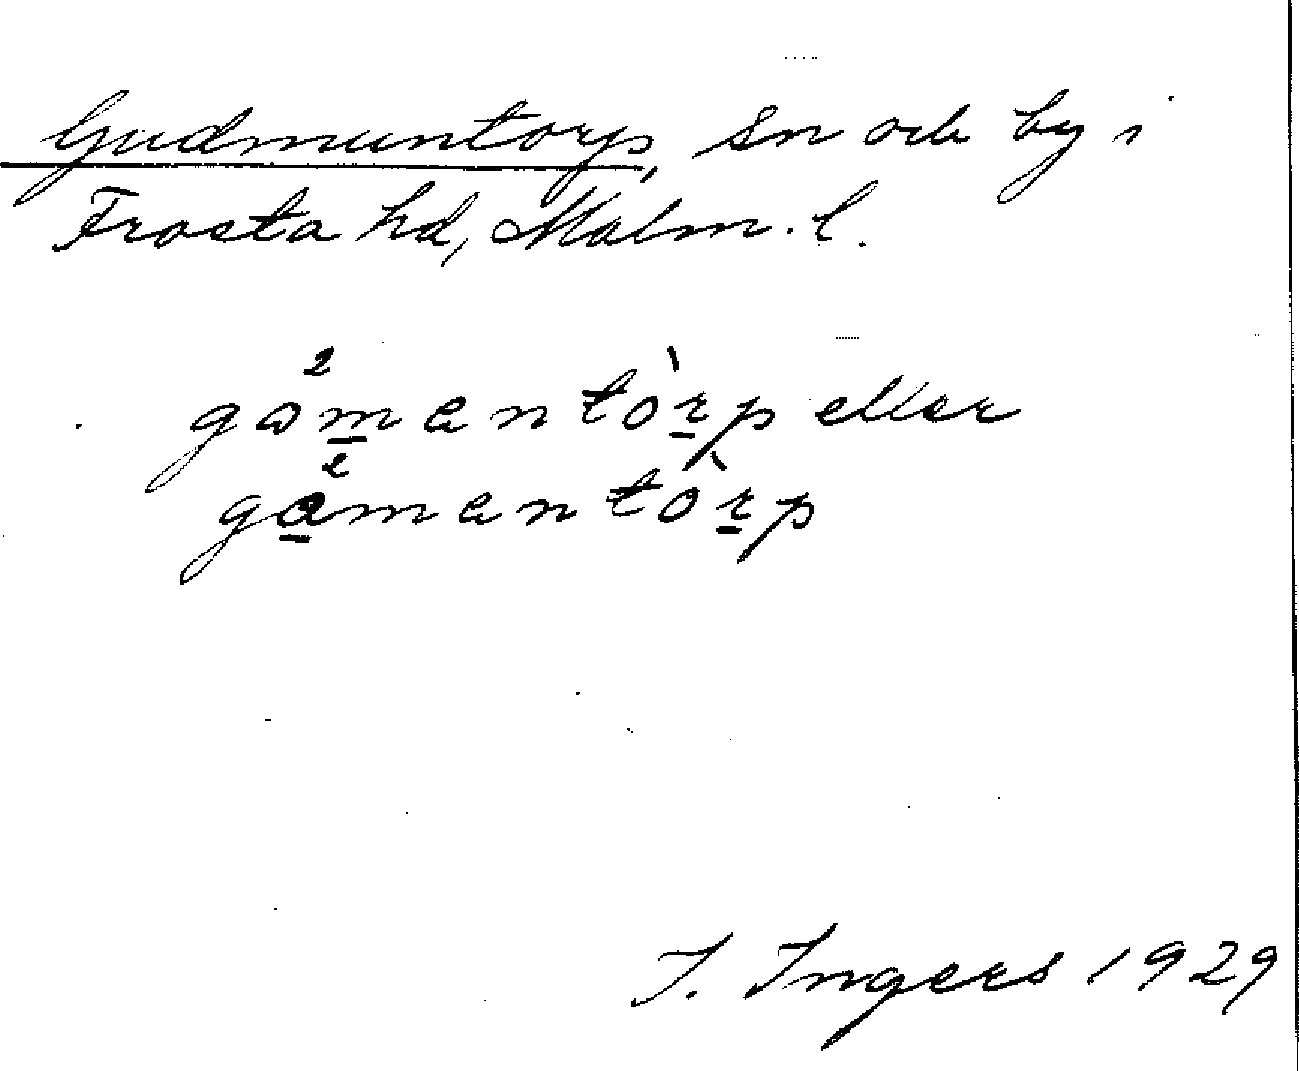 Gudmuntorp, sn och by i
Frosta hd, Malm. l.
gɷ²m̲antò̠rp eller
gɑ̠²mantò̠rp
I. Ingers 1929